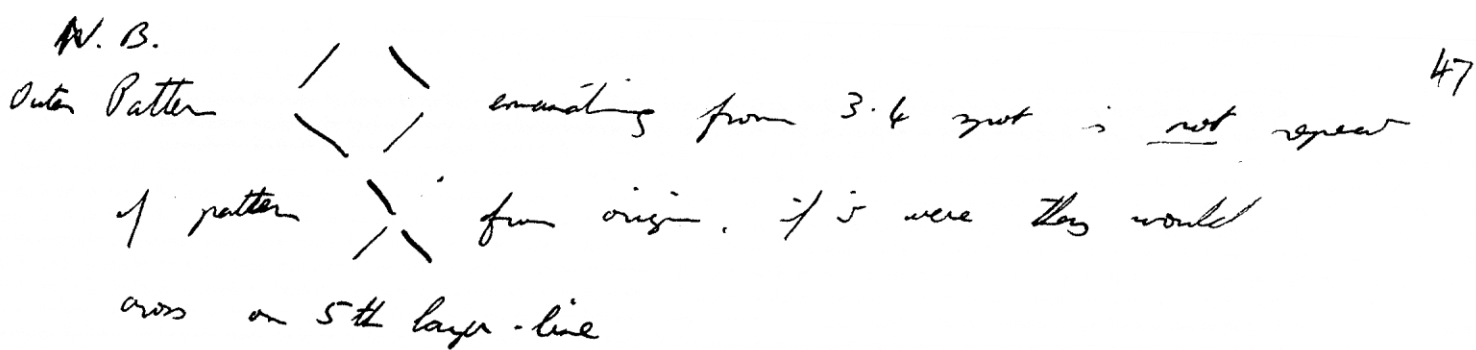 N. B.
47
Outer Pattern emanating from 3.4 spot is not repeat
of pattern from origin. if it were they would
cross on 5th layer-line